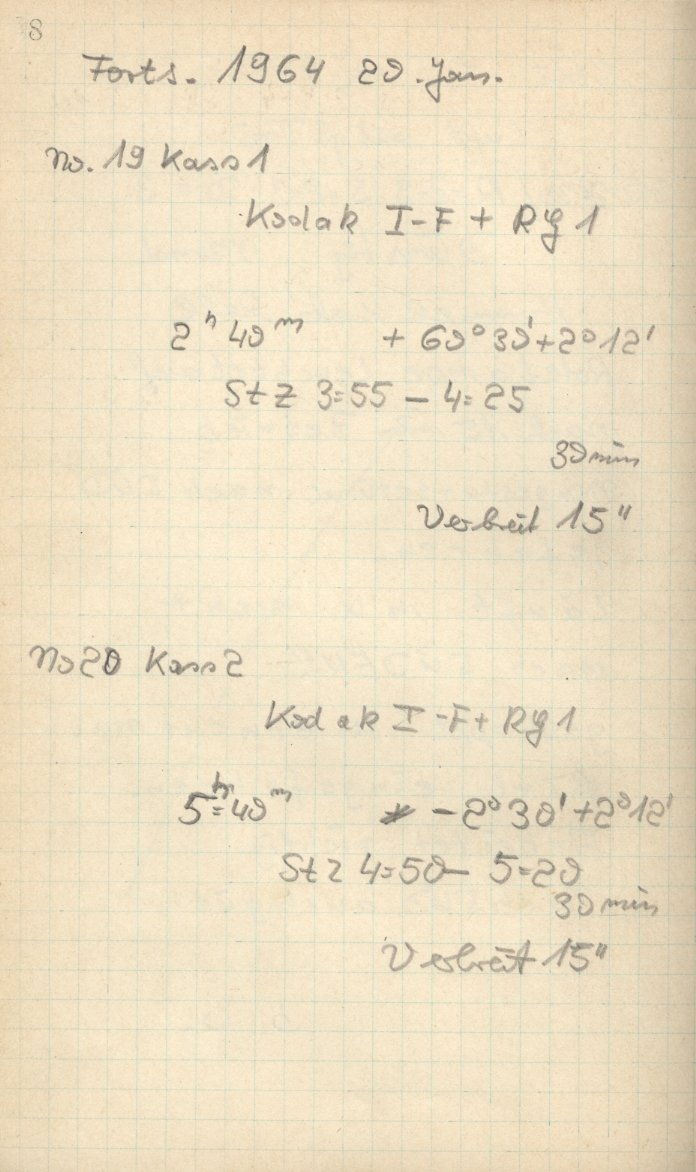 8
Forts. 1964 20. Jan.
No. 19 Kass 1
Kodak I-F + RG 1
2ʰ 40ᵐ + 60° 30' + 2° 12'
St Z 3=55 – 4=25
30 min
Verbreit 15"
No 20 Kass 2
Kodak I-F + RG 1
5ʰ=40ᵐ – 2° 30' + 2° 12'
St Z 4=50 – 5=20
30 min
Verbreit 15"